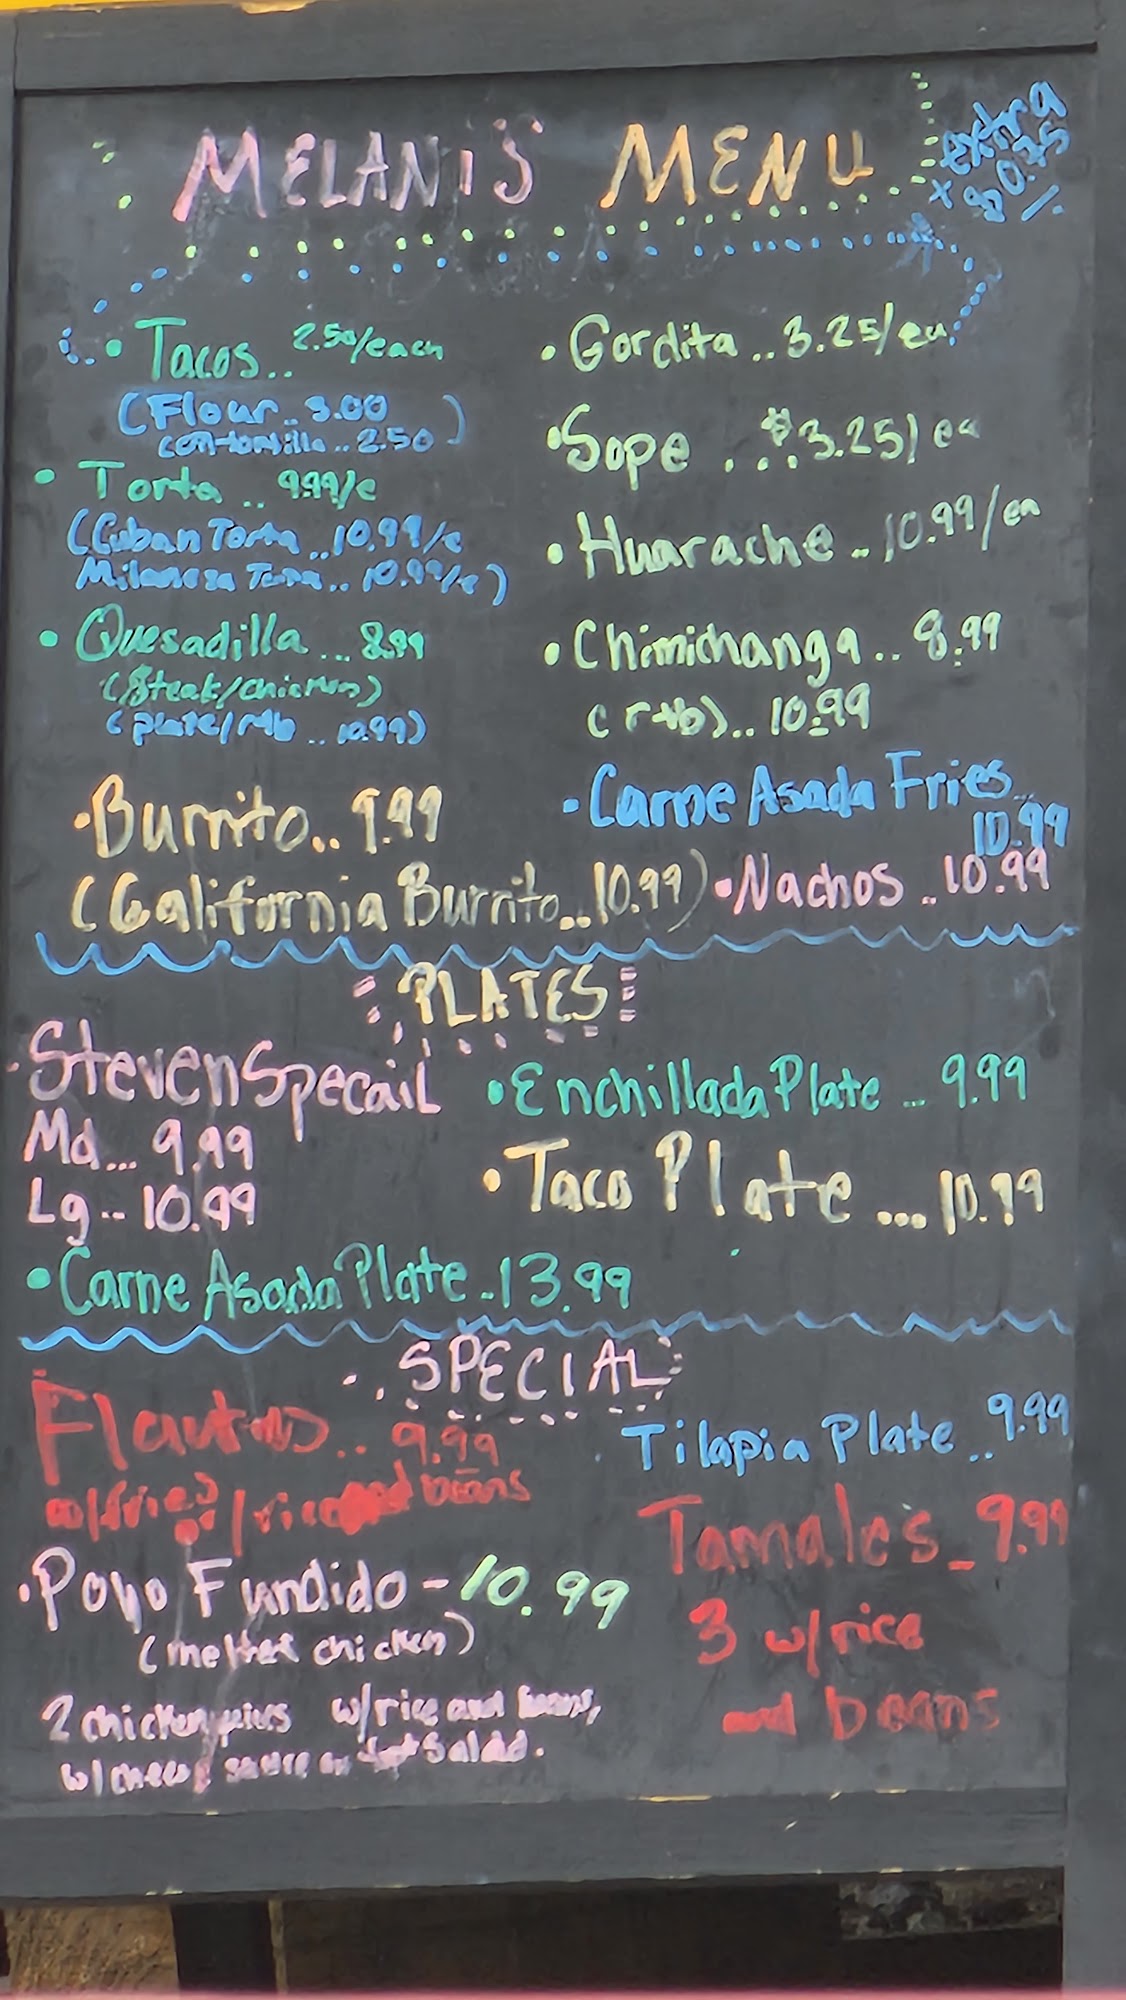 MELANi'S MENU
extra
Tacos.. 2.50/each
(Flour.. 3.00
.. 2.50)
Torta .. 9.99/e
(Cuban Torta ..10.99/e
Milanesa Torta.. 10.99/e)
Quesadilla ... 8.99
(Steak/chicken)
(plate/r+b .. 10.99)
Burrito.. 9.99
(California Burrito..10.99)
Gordita ..3.25/ea.
Sope ...$3.25/ea
Huarache ..10.99/ea
Chimichanga.. 8.99
(r+b).. 10.99
Carne Asada Fries..
10.99
Nachos ..10.99
PLATES
Steven Specail
Md... 9.99
Lg.. 10.99
Enchillada Plate ... 9.99
Taco Plate ...10.99
Carne Asada Plate..13.99
SPECIAL
Flautas.. 9.99
beans
Tilapia Plate ..9.99
Tamales - 9.99
3 w/rice
and beans
Poyo Fundido - 10.99
chicken)
2 chicken w/rice and beans,
Salad.